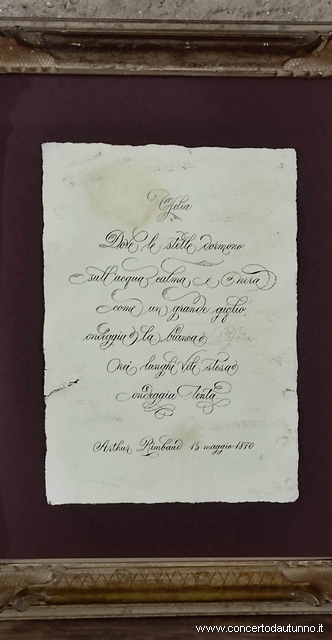 Ofelia
Dove le stelle dormono
sull'acqua calma e nera
come un grande giglio
ondeggia la bianca Ofelia
nei lunghi veli stesa
ondeggia lenta
Arthur Rimbaud 15 maggio 1870
www.concertodautunno.it